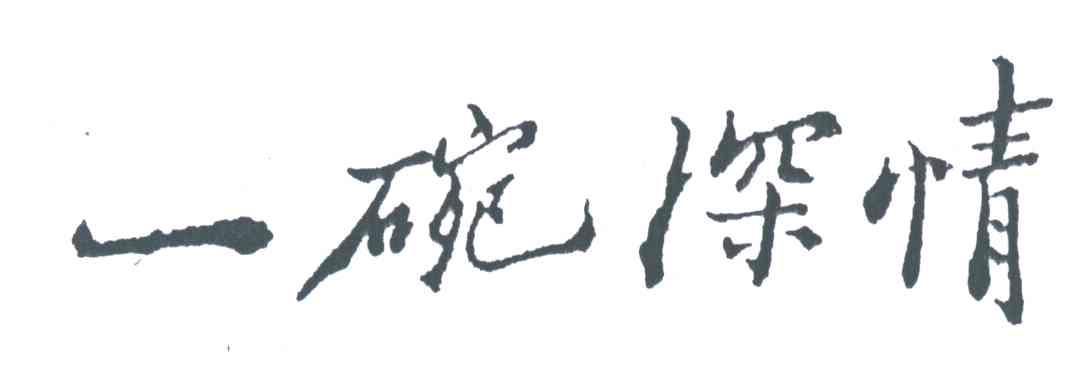 一碗深情